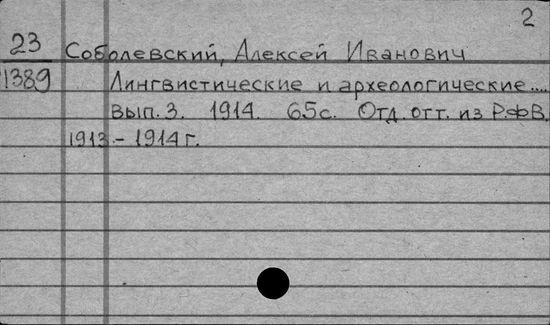 2
23 Соболевский, Алексей Иванович
1389 Лингвистические и археологические....
вып. 3. 1914. 65с. Отд. отт. из Р.ФВ.
1913 - 1914 г.